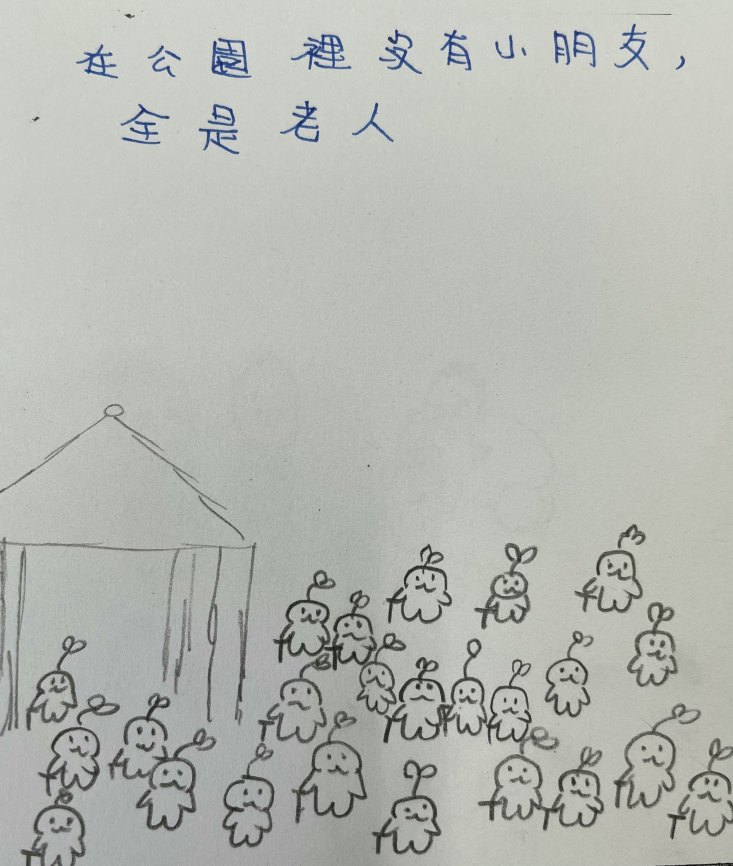 在公園裡沒有小朋友，
全是老人